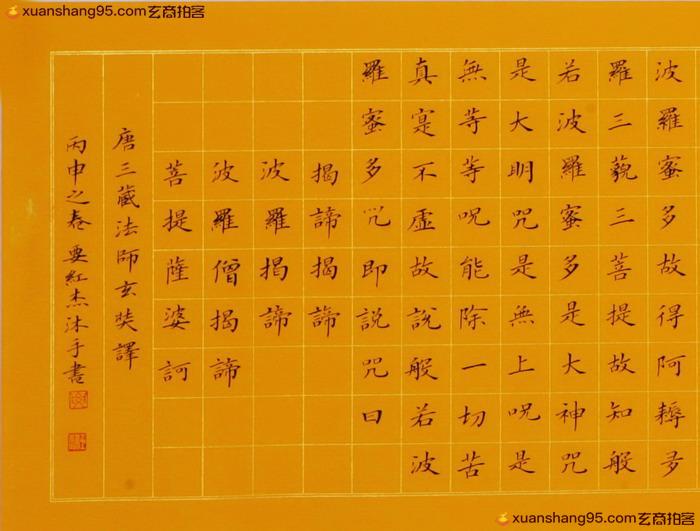 xuanshang95.com玄商拍客
波羅蜜多故得阿耨多
羅三藐三菩提故知般
若波羅蜜多是大神咒
是大明咒是無上咒是
無等等呪能除一切苦
真寔不虛故說般若波
羅蜜多咒即說咒曰
揭諦揭諦
波羅揭諦
波羅僧揭諦
菩提薩婆訶
唐三藏法師玄奘譯
丙申之春要紅杰沐手書
xuanshang95.com玄商拍客